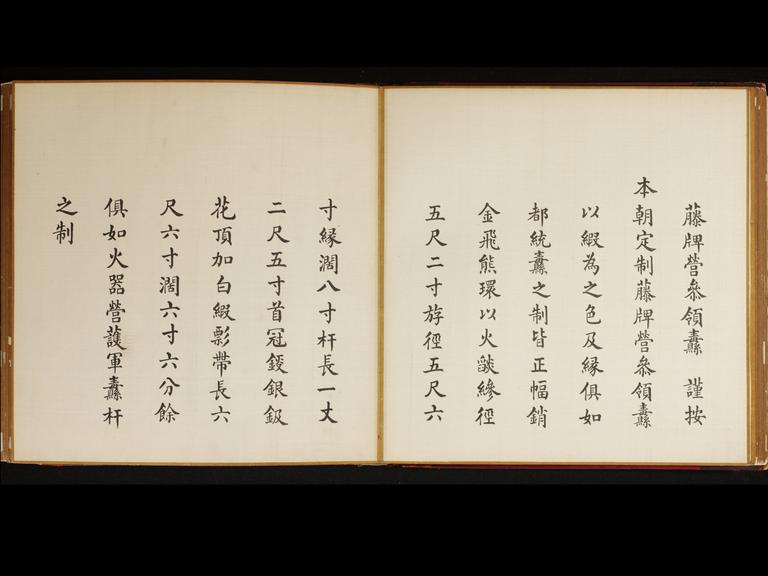 藤牌營叅領纛　謹按
本朝定制藤牌營叅領纛
以緞為之色及緣俱如
都統纛之制皆正幅銷
金飛熊環以火燄縿徑
五尺二寸斿徑五尺六
寸緣濶八寸杆長一丈
二尺五寸首冠鍐銀鈒
花頂加白緞彯帶長六
尺六寸濶六寸六分餘
俱如火器營護軍纛杆
之制